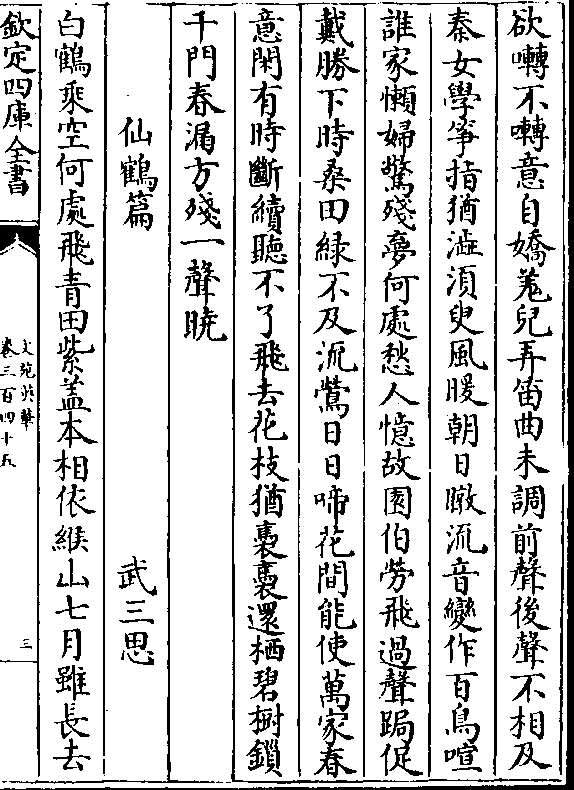 欲囀不囀意自嬌羌兒弄笛曲未調前聲後聲不相及
秦女學箏指猶澁湏臾風暖朝日暾流音變作百鳥喧
誰家懶婦驚殘夢何處愁人憶故園伯勞飛過聲跼促
戴勝下時桑田緑不及流鶯日日啼花間能使萬家春
意閑有時斷續聽不了飛去花枝猶裊裊還栖碧樹鎖
千門春漏方殘一聲曉
仙鶴篇 武三思
白鶴乘空何處飛青田紫蓋本相依緱山七月雖長去
欽定四庫全書
文苑英華
卷三百四十五
三